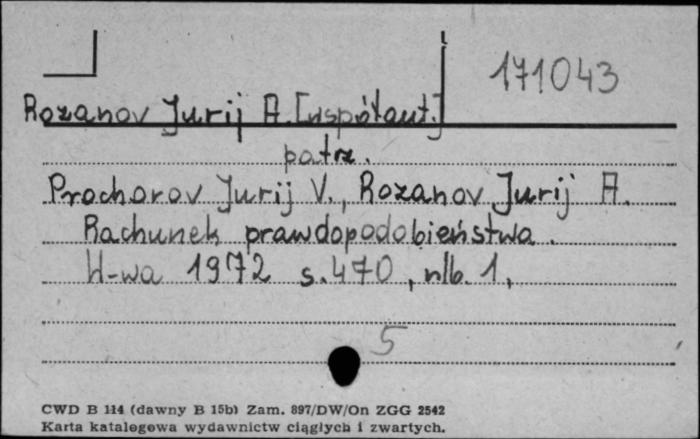 171043
Rozanov Jurij A. [współaut.]
patrz.
Prochorov Jurij V., Rozanov Jurij A.
Rachunek prawdopodobieństwa.
W-wa 1972 s. 470, nlb. 1,
5
CWD B 114 (dawny B 15b) Zam. 897/DW/On ZGG 2542
Karta katalogowa wydawnictw ciągłych i zwartych.